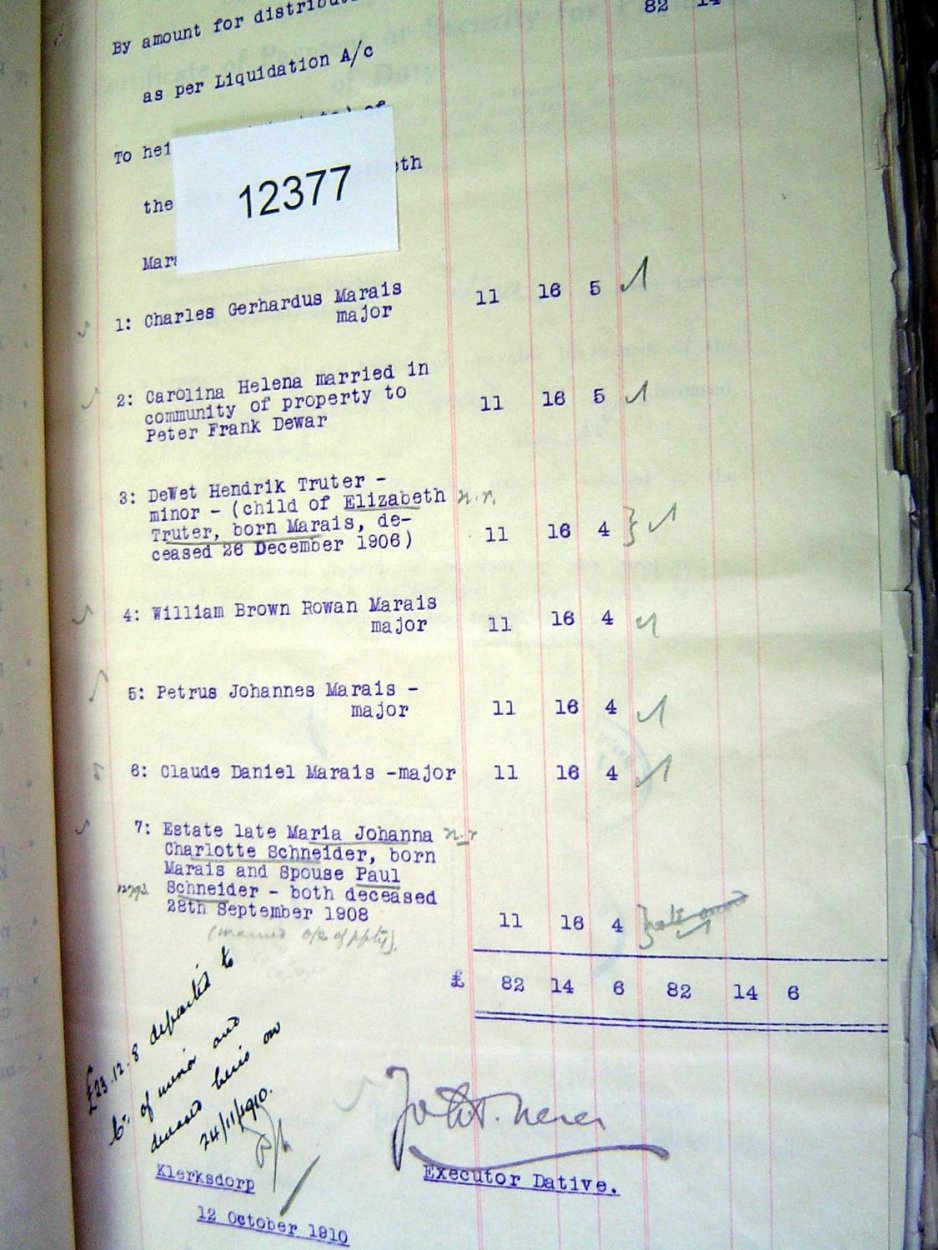 By amount for 82 14
as per Liquidation A/c
To
12377
the eth
1: Charles Gerhardus Marais 11 16 5
major
2: Carolina Helena married in
community of property to 11 16 5
Peter Frank Dewar
3: DeWet Hendrik Truter -
minor - (child of Elizabeth n.r.
Truter, born Marais, de-
ceased 26 December 1906) 11 16 4
4: William Brown Rowan Marais
major 11 16 4
5: Petrus Johannes Marais -
major 11 16 4
6: Claude Daniel Marais -major 11 16 4
7: Estate late Maria Johanna n.r
Charlotte Schneider, born
Marais and Spouse Paul
Schneider - both deceased
28th September 1908 11 16 4
(married o/c of ppty).
£ 82 14 6 82 14 6
£23.12.8 deposited to
of minor and
deceased heirs on
24/11/1910.
Klerksdorp
Executor Dative.
12 October 1910